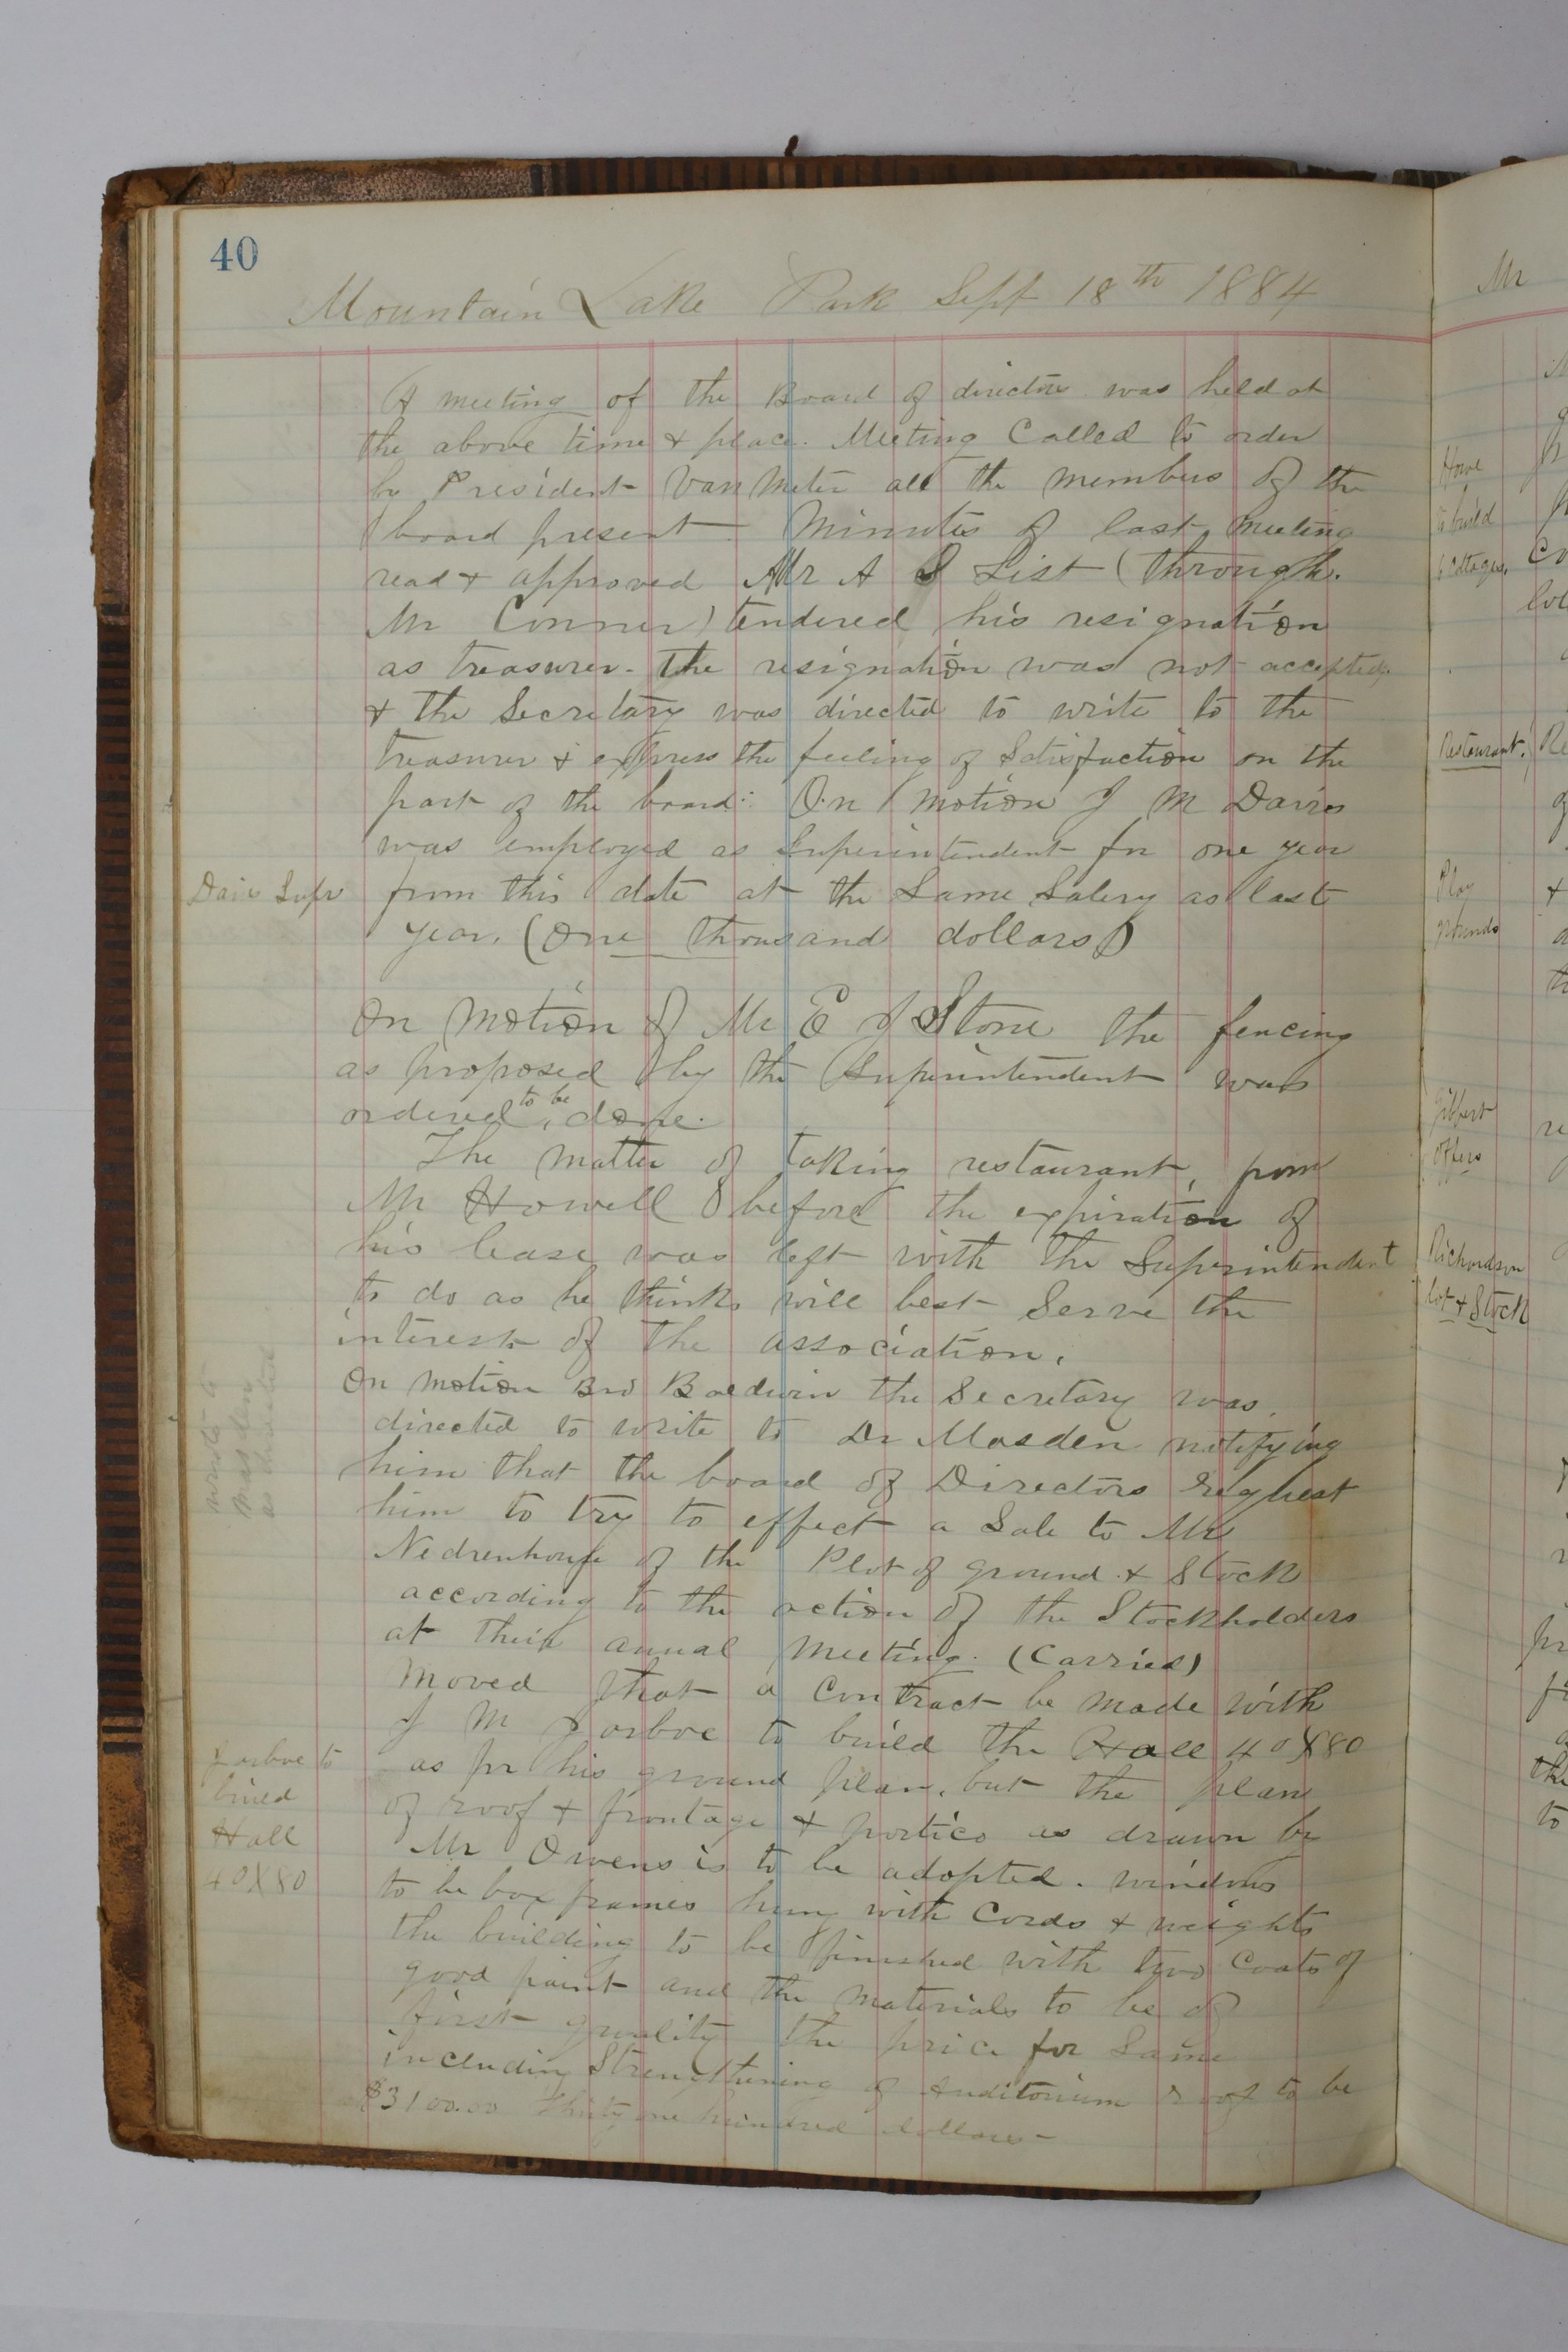 40
Mountain Lake Park Sept 18th 1884
A meeting of the Board of directors was held at
the above time & place. Meeting Called to order
by President Van Meter all the members of the
board present Minutes of last meeting
read & approved Mr A S List (through
Mr Conner) tendered his resignation
as treasurer. The resignation was not accepted
& the Secretary was directed to write to the
treasurer & express the feeling of Satisfaction on the
part of the board. On motion J M Davis
was employed as Superintendent for one year
Davis Supr
from this date at the Same Salery as last
year, (One thousand dollars)
On motion of Mr E J Stone the fencing
as proposed by the Superintendent was
ordered to be done.
The matter of taking restaurant, from
Mr Howell before the expiration of
his lease was left with the Superintendent
to do as he thinks will best Serve the
interest of the association.
On motion Bro Baldwin the Secretary was
directed to write to Dr Masden notifying
him that the board of Directors request
him to try to effect a Sale to Mr
of the Plot of ground & Stock
according to the action of the Stockholders
at their annual meeting. (Carried)
wrote to
Masden
as directed
moved that a Contract be made with
J M Jarboe to build the Hall 40X80
as pr his ground plan, but the plan
of roof & frontage & portico as drawn by
Mr Owens is to be adopted. windows
to be box frames hung with Cords & weights
the building to be finished with two Coats of
good paint and the materials to be of
first quality the price for Same
including Strengthening of Auditorium roof to be
$3100.00 Thirty one hundred dollars -
Jarboe to
build
Hall
40X80
Mr
Howe
to build
6 Cottages.
Co
Restaurant.
Re
Play
grounds
&
offers
Richardson
lot & Stock
the
to